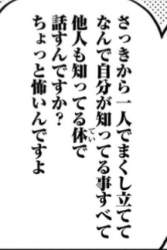 さっきから一人でまくし立てて
なんで自分が知ってる事すべて
他人も知ってる体で
話すんですか？
ちょっと怖いんですよ